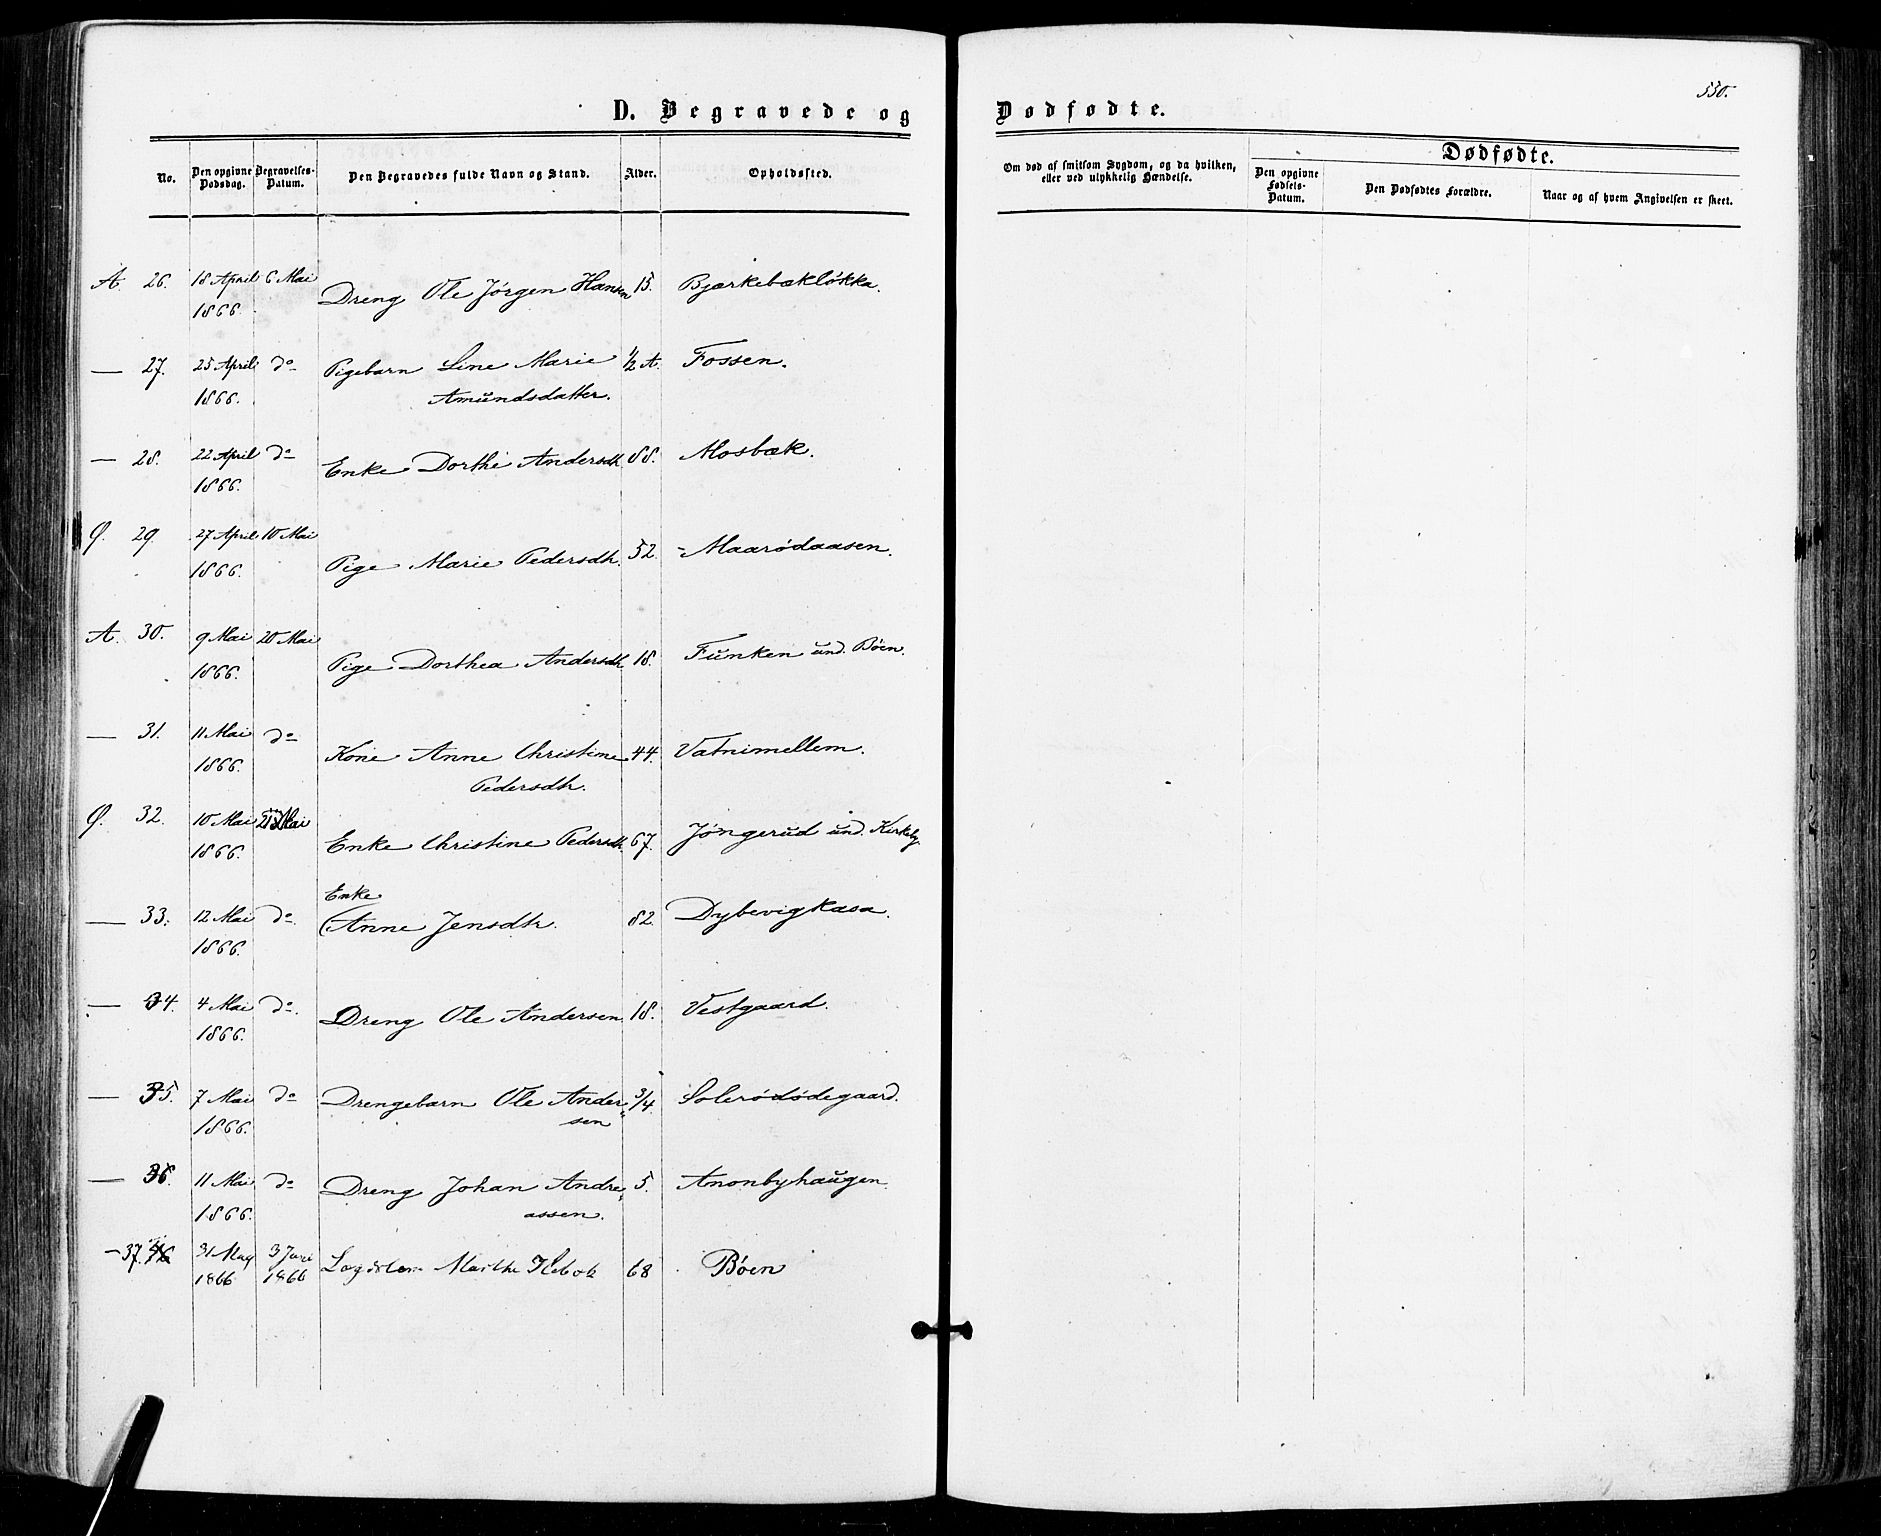 550.
D. Begravede og Dødfødte.
No. Den opgivne Dødsdag. Begravelses-Datum. Den Begravedes fulde Navn og Stand. Alder. Opholdssted.
Om død af smitsom Sygdom, og da hvilken, eller ved ulykkelig Hændelse.
Dødfødte.
Den opgivne Fødsels-Datum. Den Dødfødtes Forældre. Naar og af hvem Angivelsen er skeet.
A. 26. 18 April 6 Mai Dreng Ole Jørgen Hansen 15. Bjærkebækløkka.
1866.
— 27. 25 April do Pigebarn Line Marie 1/2 A. Fossen.
1866. Amundsdatter.
— 28. 22 April do Enke Dorthe Andersdtr. 88. Mosbæk.
1866.
Ø. 29. 27 April 10 Mai Pige Marie Pedersdtr. 52. Maarødaasen.
1866.
A. 30. 9 Mai 20 Mai Pige Dorthea Andersdtr. 18. Funken und. Bøen.
1866.
— 31. 11 Mai do Kone Anne Christine 44. Vatnimellem.
1866. Pedersdtr.
Ø. 32. 10 Mai 21 Mai Enke Christine Pedersdtr. 67. Jøngerud und. Kirkeby.
1866.
Enke
— 33. 12 Mai do. Anne Jensdtr. 82. Dybevigkasa.
1866.
— 34. 4 Mai do. Dreng Ole Andersen 18. Vestgaard.
1866.
— 35. 7 Mai do Drengebarn Ole Ander- 3/4. Solerødødegaard.
1866. sen
— 36. 11 Mai do Dreng Johan Andre- 5. Anonbyhaugen.
1866. assen.
— 37. 31 May 3 Juni Marthe 68 Bøen
1866 1866